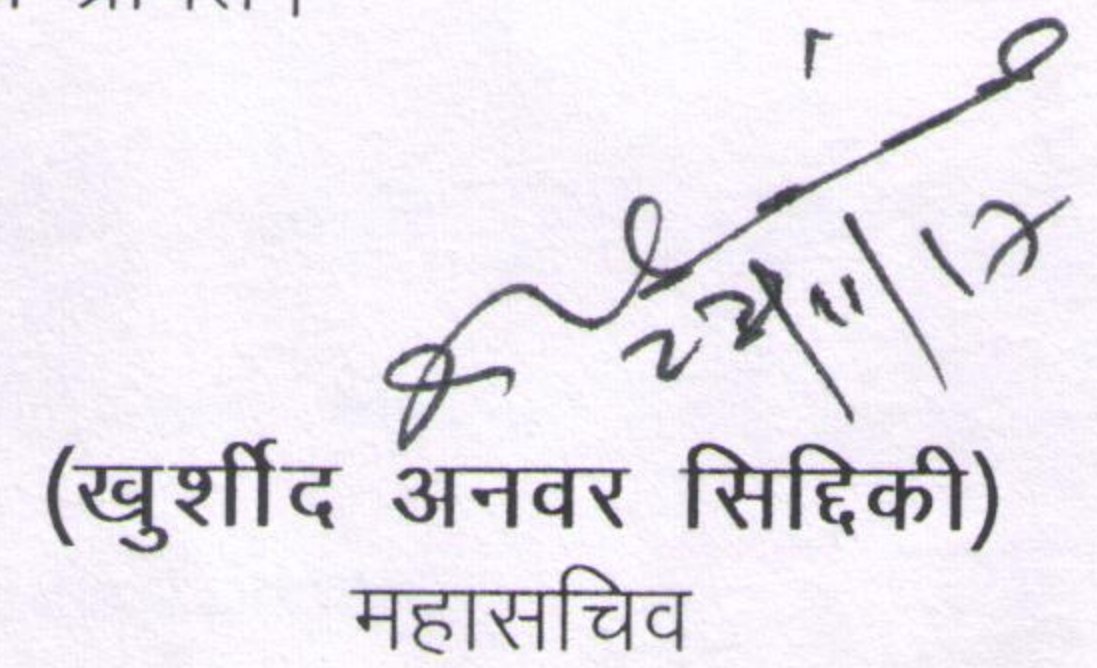 22/11/17
(खुर्शीद अनवर सिद्दिकी)
महासचिव